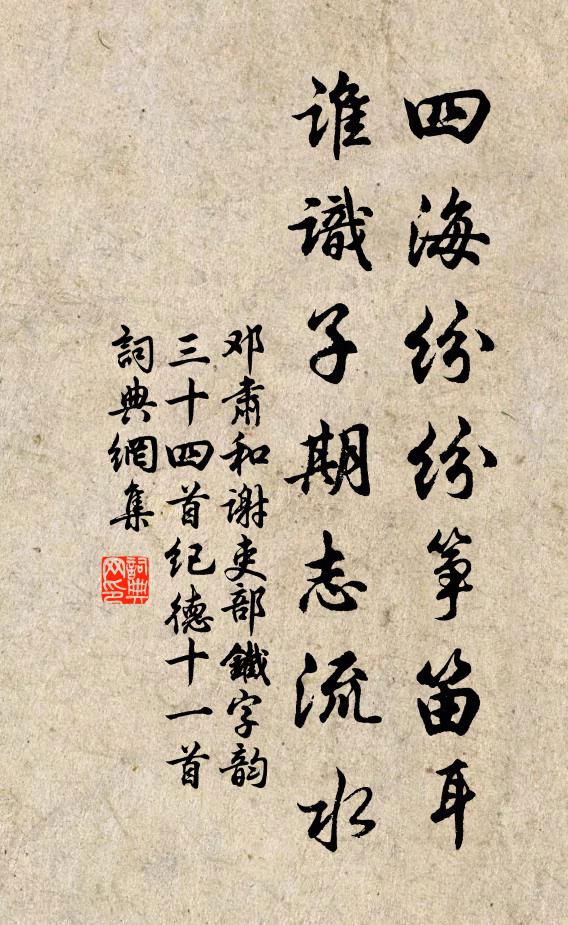 四海纷纷筝笛耳
谁識子期志流水
邓肃和谢吏部鐵字韵
三十四首纪德十一首
詞典網集
詞典
网印